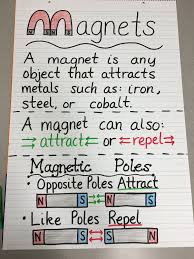 Magnets
A magnet is any
object that attracts
metals such as: iron,
steel, or cobalt.
A magnet can also:
attract or repel
Magnetic Poles
• Opposite Poles Attract
N S N S
• Like Poles Repel
N S S N